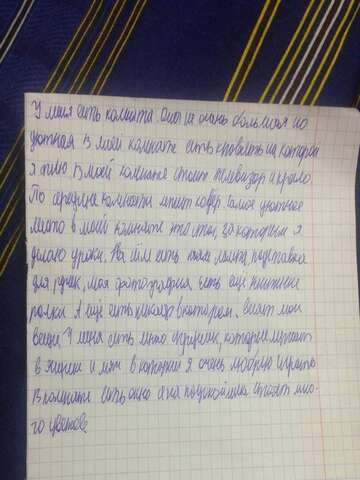 У меня есть комната. Она не очень большая но
уютная В моей комнате есть кровать на которой
я сплю В моей комнате стоит телевизор и кресло
По середине комнаты лежит ковёр Самое уютное
место в моей комнате это стол, за которым я
делаю уроки. На нём есть лампа, подставка
для ручек, моя фотография есть ещё книжные
полки А ещё есть шкаф в котором. висят мои
вещи. У меня есть много игрушек, которые лежат
в ящике и мяч в который я очень люблю играть
В комнате есть окно а на подоконнике стоят мно-
го цветов.